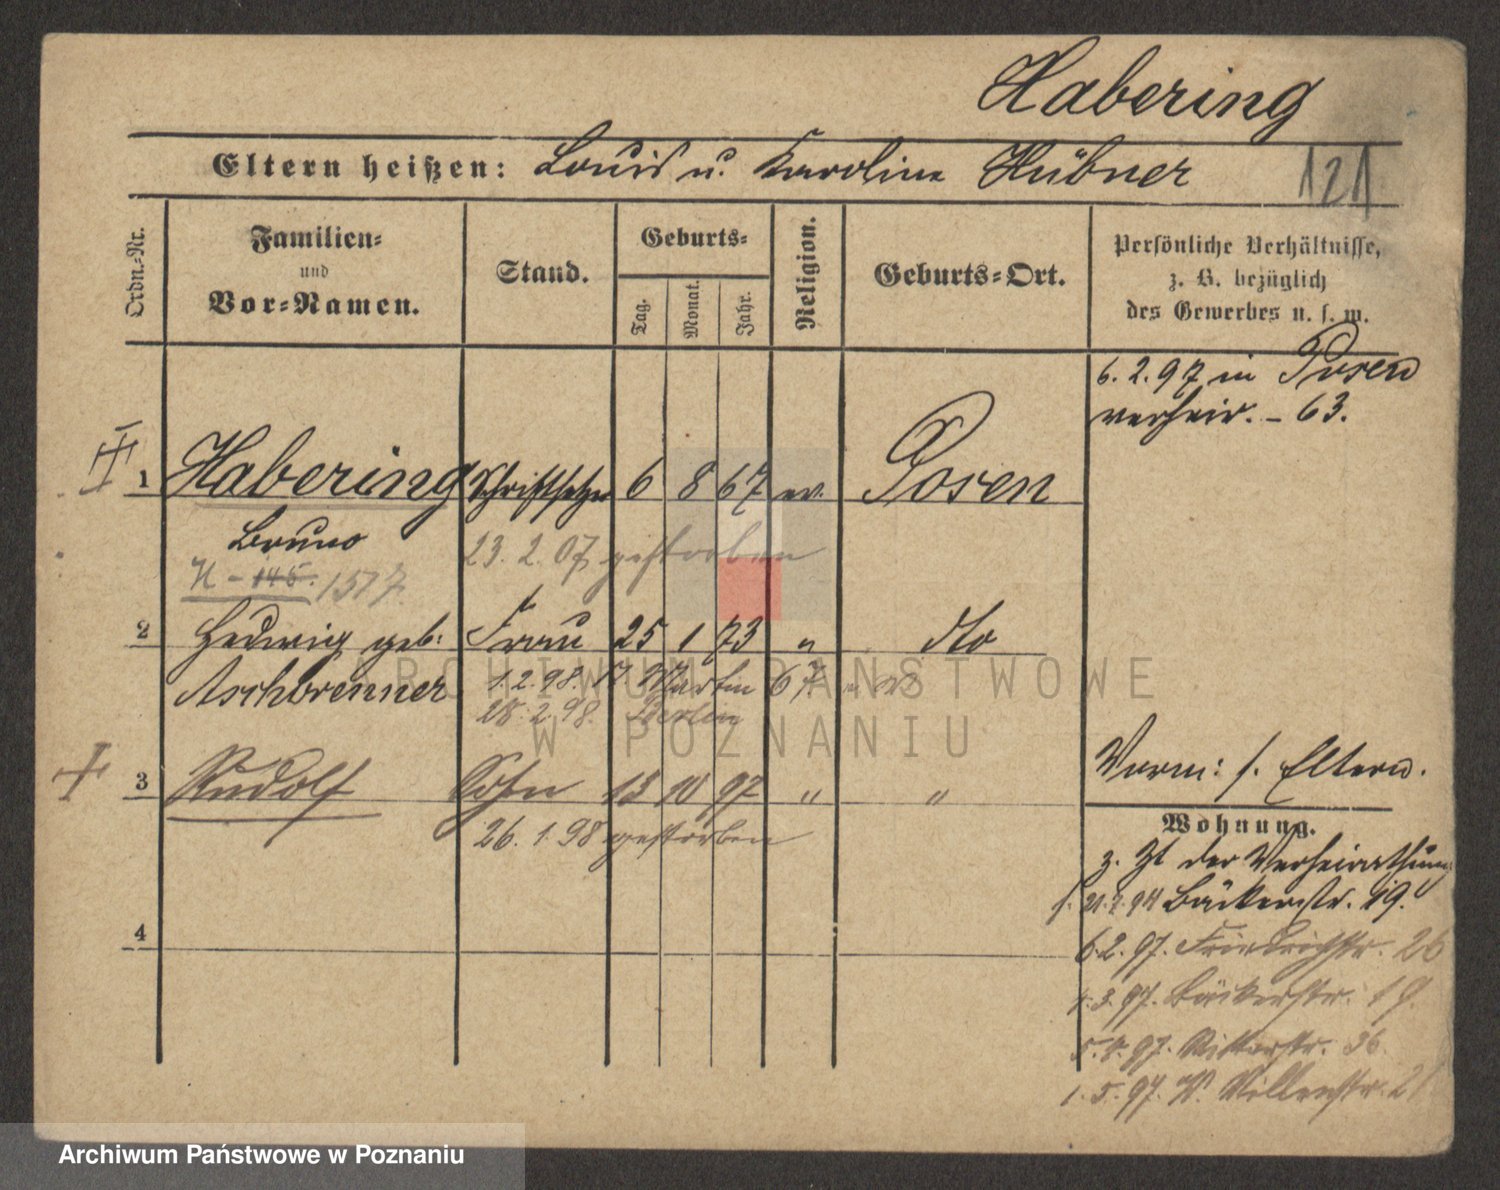 Habering
Eltern heißen: Louis u. Karoline Hübner
121
Ordn.-Nr.
Familien-
und
Vor-Namen.
Stand.
Geburts-
Tag.
Monat.
Jahr.
Religion.
Geburts-Ort.
Persönliche Verhältnisse,
z. B. bezüglich
des Gewerbes u. s. w.
6. 2. 97 in Posen
verheir. - 63.
1 Habering Schriftsetzer 6 8 67 ev. Posen
Bruno 23. 2. 07 gestorben
H - 145. 1517.
2 Hedwig geb: Frau 25 1 73 " dto
Aschbrenner 1. 2. 98. St Martin 67
28. 2. 98. Berlin
3 Rudolf Sohn 15 10 97 " "
26. 1. 98 gestorben
4
Vorm: s. Eltern.
Wohnung.
z. Zt der Verheirathung
s. 21. 2. 94 Bäckerstr. 19.
6. 2. 97. Friedrichstr. 26
4. 3. 97. Bäckerstr. 19.
5. 4. 97. Ritterstr. 36.
1. 5. 97. W.
ARCHIWUM PAŃSTWOWE
W POZNANIU
Archiwum Państwowe w Poznaniu